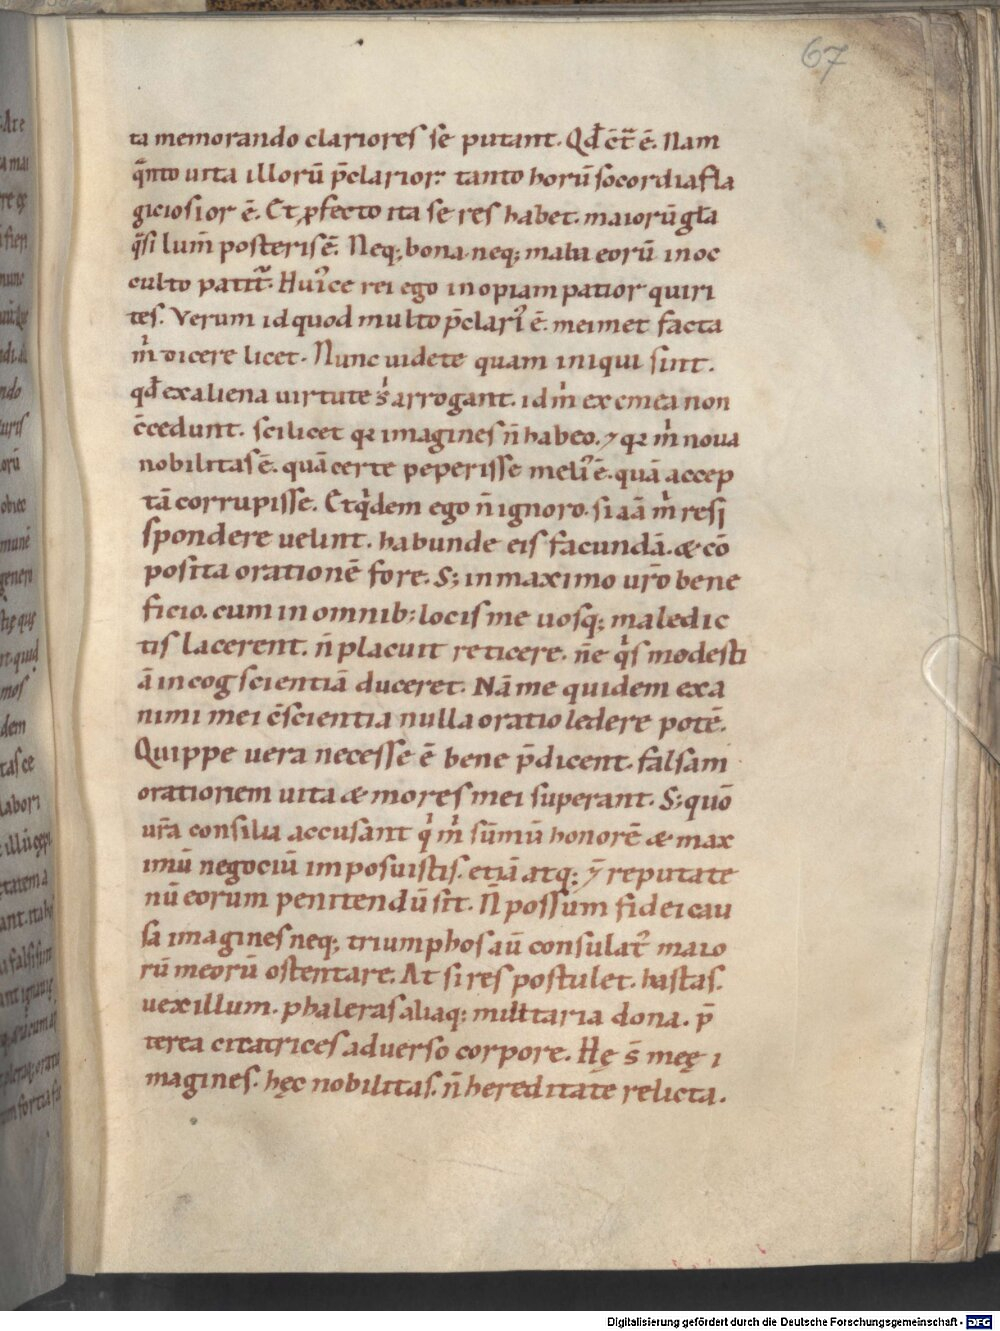 67
ta memorando clariores se putant. Qđ ꝯt̄ ē. Nam
qͣnto uita illorū p̄clarior: tanto horū socordia fla
giciosior ē. Et ꝓfecto ita se res habet. maiorū gła
qͣsi lum̄ posteris ē. Neq; bona neq; mala eorū in oc
culto patit᷑. Hui᾽ce rei ego inopiam patior quiri
tes. Verum id quod multo p̄clari᾽ ē. meimet facta
m̍ dicere licet. Nunc uidete quam iniqui sint.
qđ ex aliena uirtute s̍ arrogant. id m̍ ex c mea non
c̄cedunt. scilicet qꝛ imagines n̄ habeo. ⁊ qꝛ m̍ noua
nobilitas ē. quā certe peperisse meli᾽ ē. quā accep
tā corrupisse. Et q̍dem ego n̄ ignoro. si aā m̍ resi
spondere uelint. habunde eis facundā. & cō
posita orationē fore. S; in maximo ur̄o bene
ficio. cum in omnib; locis me uosq; maledic
tis lacerent. n̄ placuit reticere. ñe q̍s modesti
ā in cog scientiā duceret. Nā me quidem ex a
nimi mei c̄scientia nulla oratio ledere potē.
Quippe uera necesse ē bene p̄dicent. falsam
orationem uita & mores mei superant. S; quō
ur̄a consilia accusant q̍ m̍ sūmū honorē & max
imū negociū imposuistis. etiā atq; ⁊̄ reputate
nū eorum penitendū sit. N̄ possum fidei cau
sa imagines neq; triumphos aū consulat᾽ maio
rū meorū ostentare. At si res postulet. hastas.
uexillum. phaleras aliaq; militaria dona. p̄
terea citatrices aduerso corpore. Hę s̄ meę i
magines. hęc nobilitas. n̄ hereditate relicta.
Digitalisierung gefördert durch die Deutsche Forschungsgemeinschaft - DFG